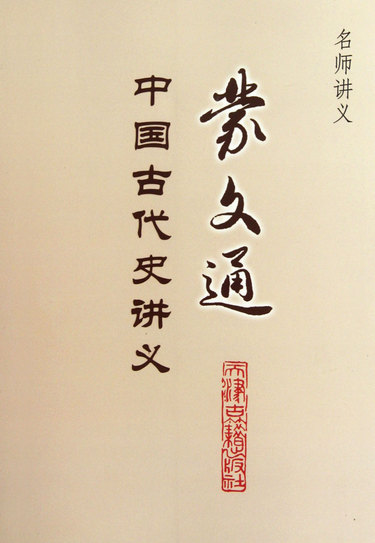 名师讲义
蒙文通
中国古代史讲义
天津古籍出版社